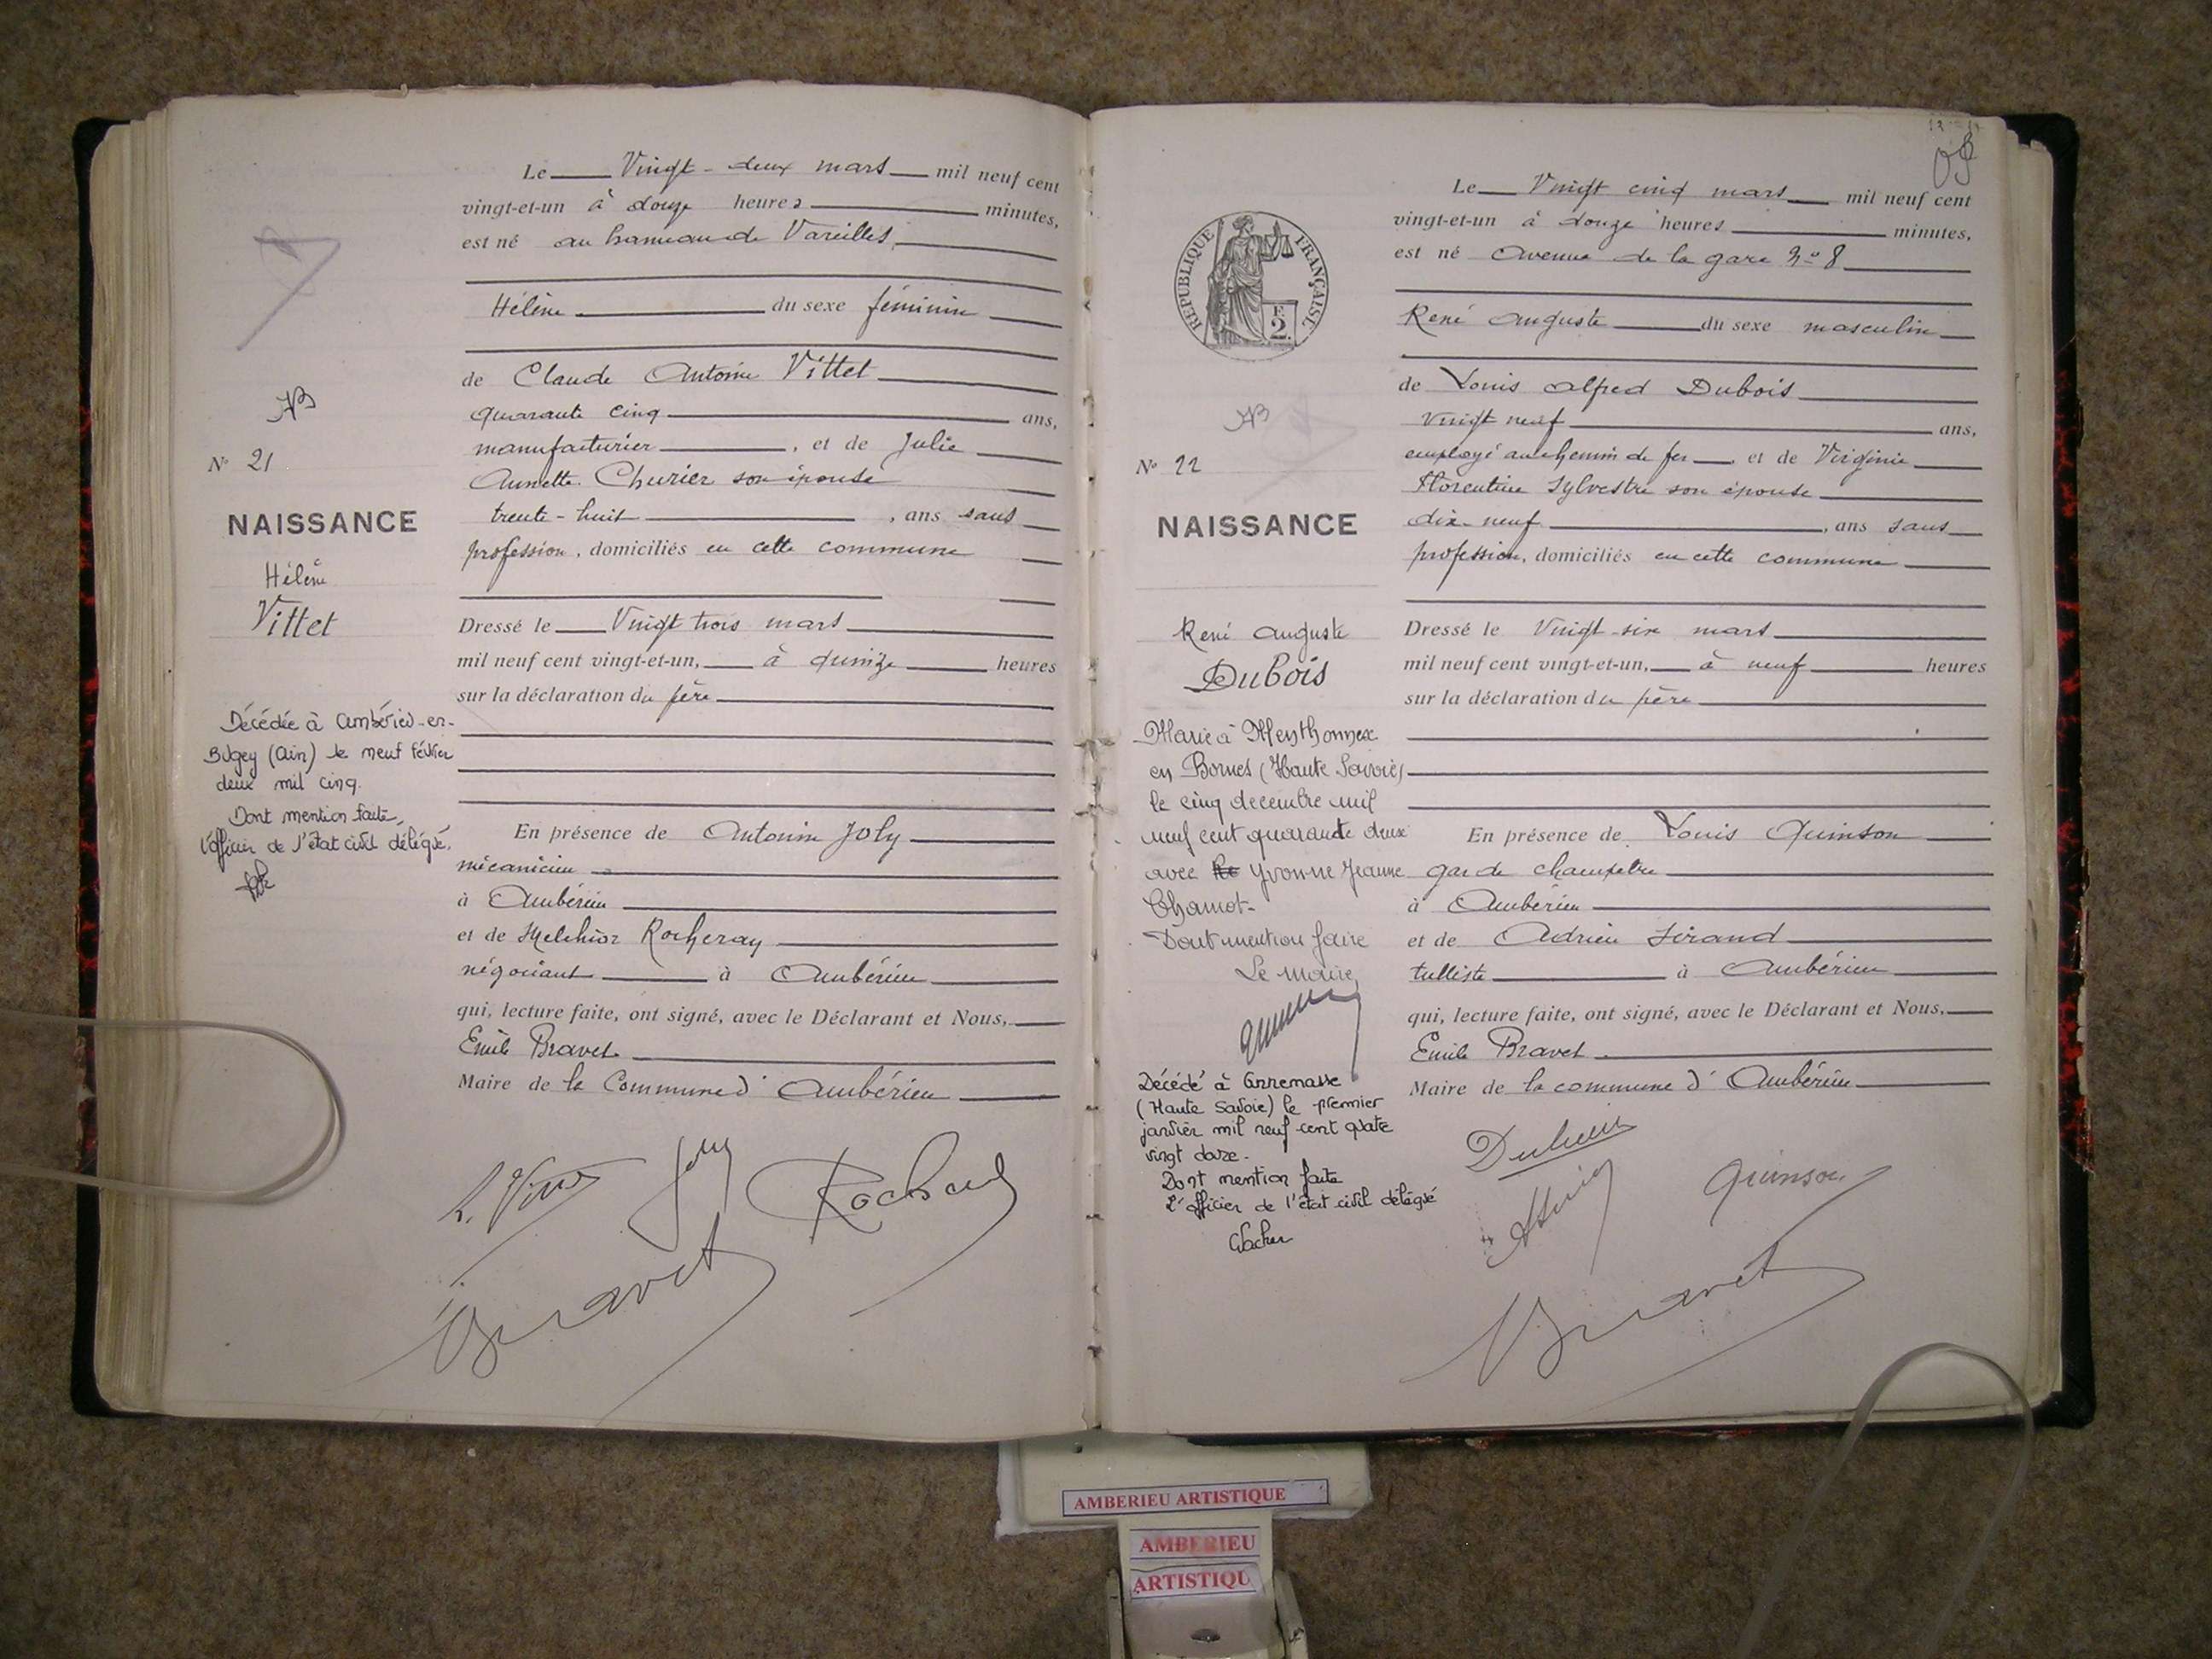 Le Vingt-deux mars mil neuf cent
vingt-et-un à douze heures minutes,
est né au hameau de Vareilles,
Hélène du sexe féminin
de Claude Antoine Vittet
quarante cinq ans,
manufacturier, et de Julie
Annette Churier son épouse
trente-huit, ans sans
profession, domiciliés en cette commune
Dressé le Vingt trois mars
mil neuf cent vingt-et-un, à quinze heures
sur la déclaration du père
En présence de Antonin Joly
mécanicien
à Ambérieu
et de Melchior Rocheray
négociant à Ambérieu
qui, lecture faite, ont signé, avec le Déclarant et Nous,
Emile Bravet
Maire de la Commune d'Ambérieu
Joly
Bravet
N° 21
NAISSANCE
Hélène
Vittet
Décédée à Ambérieu-en-
Bugey (Ain) le neuf février
deux mil cinq.
Dont mention faite,
l'officier de l'état civil délégué.
REPUBLIQUE FRANÇAISE
F.
2.
N° 22
NAISSANCE
René Auguste
Dubois
Marié à Menthonnex
en Bornes (Haute Savoie)
le cinq decembre mil
neuf cent quarante deux
avec Yvonne Jeanne
Chamot-
Dont mention faire
Le maire
Décédé à Annemasse
(Haute Savoie) le premier
janvier mil neuf cent quatre
vingt douze.
Dont mention faite
L'officier de l'état civil délégué
Le Vingt cinq mars mil neuf cent
vingt-et-un à douze heures minutes,
est né Avenue de la gare n° 8
René Auguste du sexe masculin
de Louis Alfred Dubois
vingt neuf ans,
employé au chemin de fer, et de Virginie
Florentine Sylvestre son épouse
dix-neuf, ans sans
profession, domiciliés en cette commune
Dressé le Vingt-six mars
mil neuf cent vingt-et-un, à neuf heures
sur la déclaration du père
En présence de Louis Quinson
garde champetre
à Ambérieu
et de Adrien
tulliste à Ambérieu
qui, lecture faite, ont signé, avec le Déclarant et Nous,
Emile Bravet
Maire de la commune d'Ambérieu
Quinson
Bravet
AMBERIEU ARTISTIQUE
AMBERIEU
ARTISTIQU